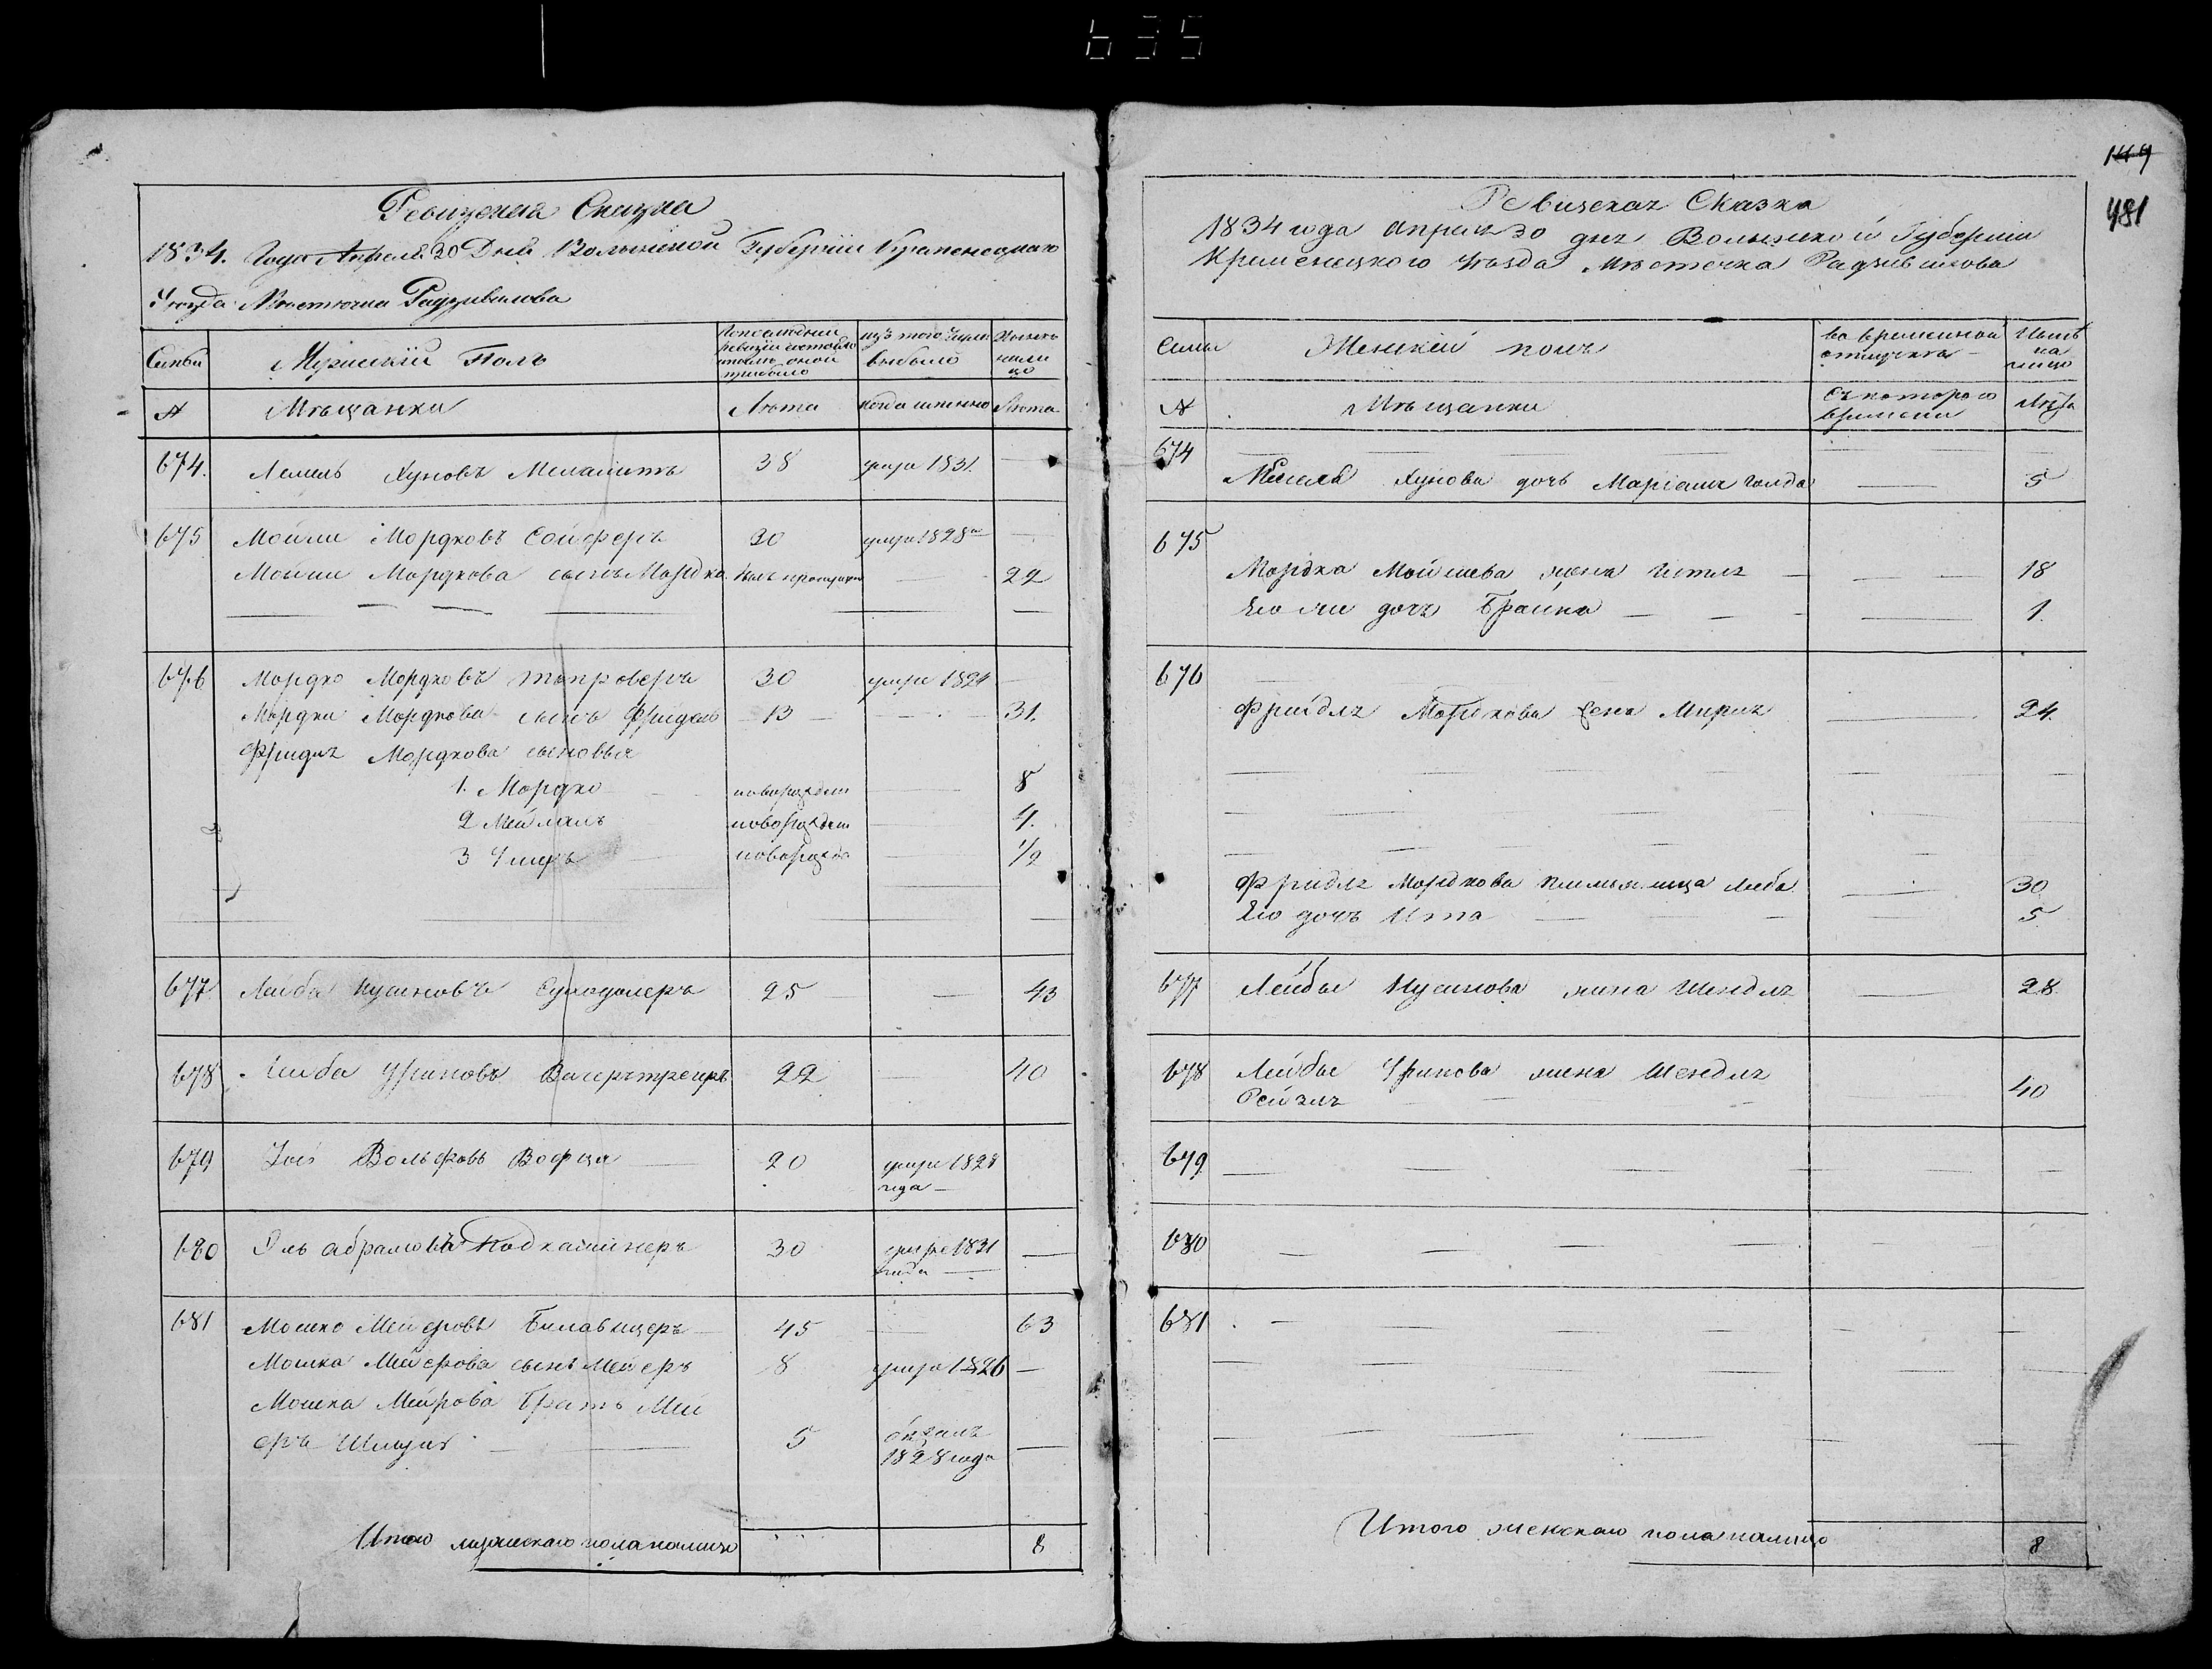 635
Ревизская Сказка
1834. Года Апреля 30 Дня Волынской Губернии Кременецкаго
Уезда Местечка Радзивилова
Семьи
Мужеский Полъ
По последней ревизии состояло и после оной прибыло
изъ того числа выбыло
Ныне на лицо
№
Мещанки
Лета
когда именно
Лета
674. Лемель Хуновъ 38 умре 1831. —
675 Мойши Мордковъ Сойферъ 30 умре 1828 —
Мойши Мордкова сынъ Мордко былъ пропущенъ — 22
676 Мордко Мордковъ 30 умре 1824 —
Мордки Мордкова сынъ Фридель 13 — 31.
Фриделя Мордкова сыновья
1. Мордко новорожден — 8
2 Мейлахъ новорожден — 4.
3 Ушеръ новорожде — 1/2
677 Лейба Нусиновъ Суходолеръ 25 — 43
678 Лейба Уриновъ Васертрегеръ 22 — 40
679 Вольфовъ 20 умре 1828
года —
680 Эль Абрамовъ Подкаминеръ 30 умре 1831
года — —
681 Мошко Мейеровъ Билавицеръ 45 — 63
Мошка Мейерова сынъ Мейеръ 8 умре 1826 —
Мошка Мейрова Братъ Мей
еръ 5 бежалъ
1828 года —
Итого мужескаго пола налицо 8
149
481
Ревизская Сказка
1834 года Апреля 30 дня Волынской Губернии
Кременецкого Уезда Местечка Радзивилова
Семьи
Женский полъ
во временной отлучке
Ныне на лицо
№
Мещанки
съ которого времени
Лета
674
Лемеля Хунова дочь Мариаша Голда — 5
675
Мордка Мойшева жена — 18
Его же дочь Брайна — 1.
676
Фрийдля Мордкова жена Мирля — 24.
Фридля Мордкова Леба — 30
Ею дочь Ита — 5
677 Лейбы Нусинова жена Шендля — 28.
678 Лейбы Уринова жена Шендля
Рейзля 40
679 —
680 —
681 —
Итого женскаго пола налицо 8